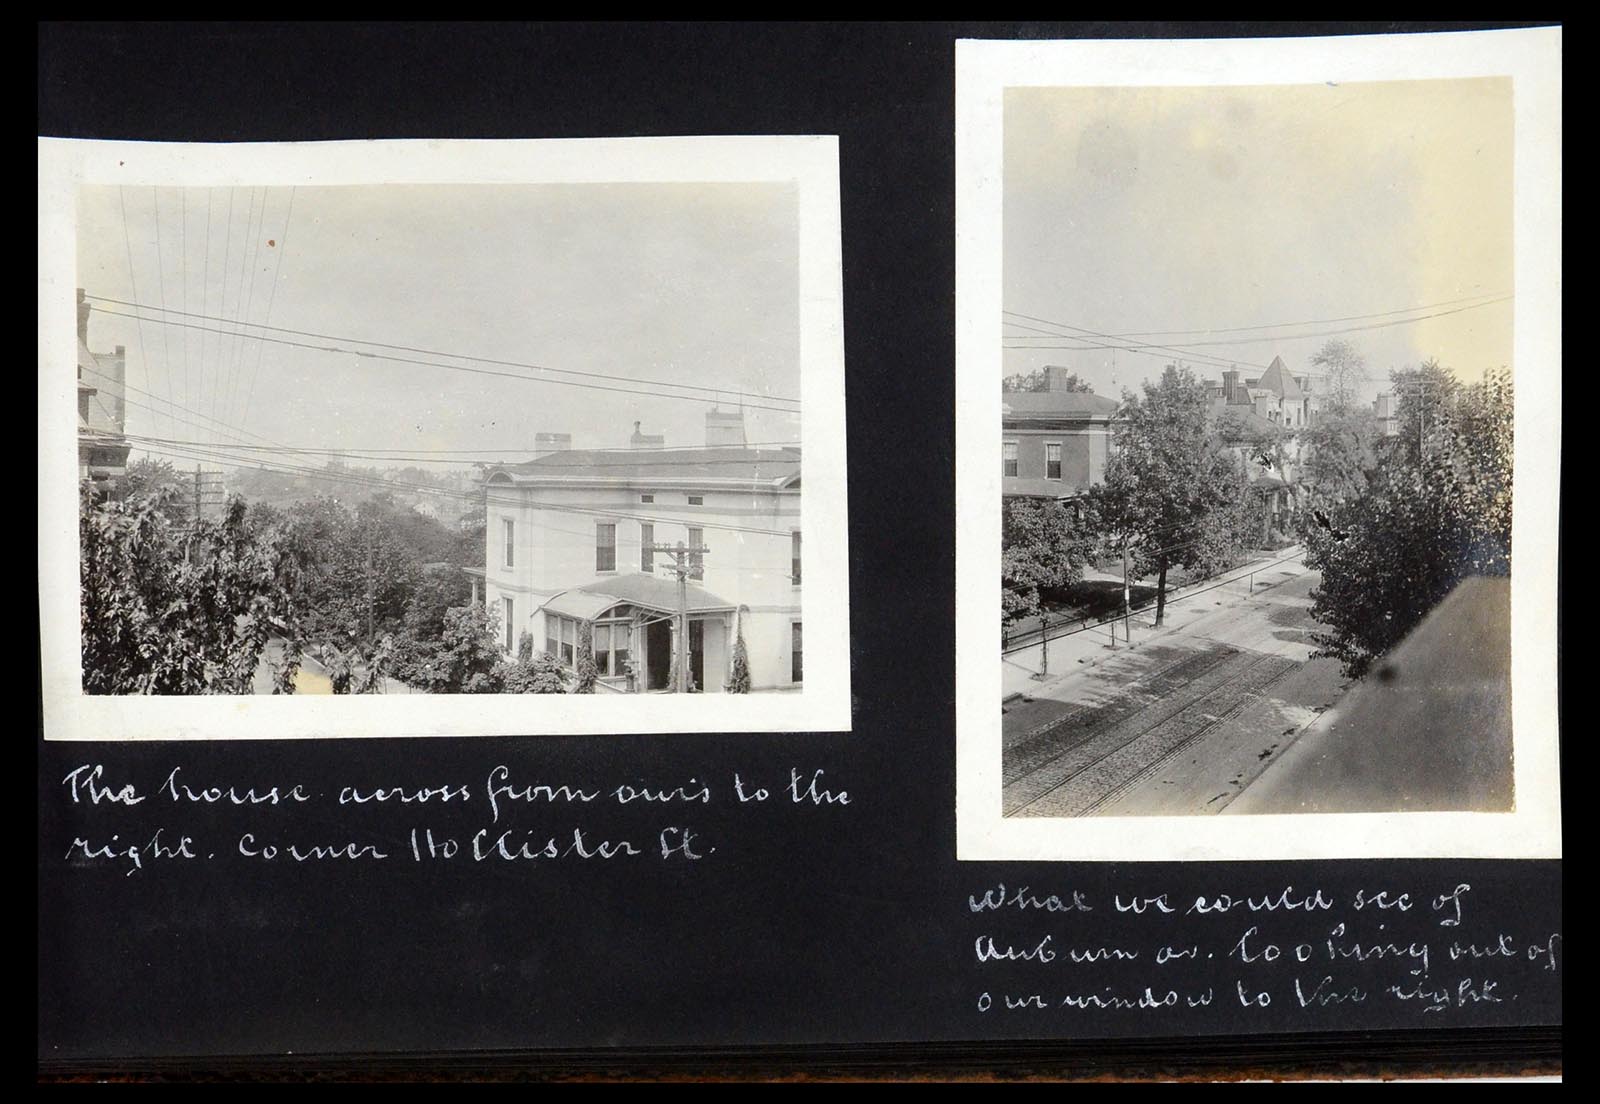 The house across from ours to the
right. Corner Hollister St.
What we could see of
Auburn av. looking out of
our window to the right.